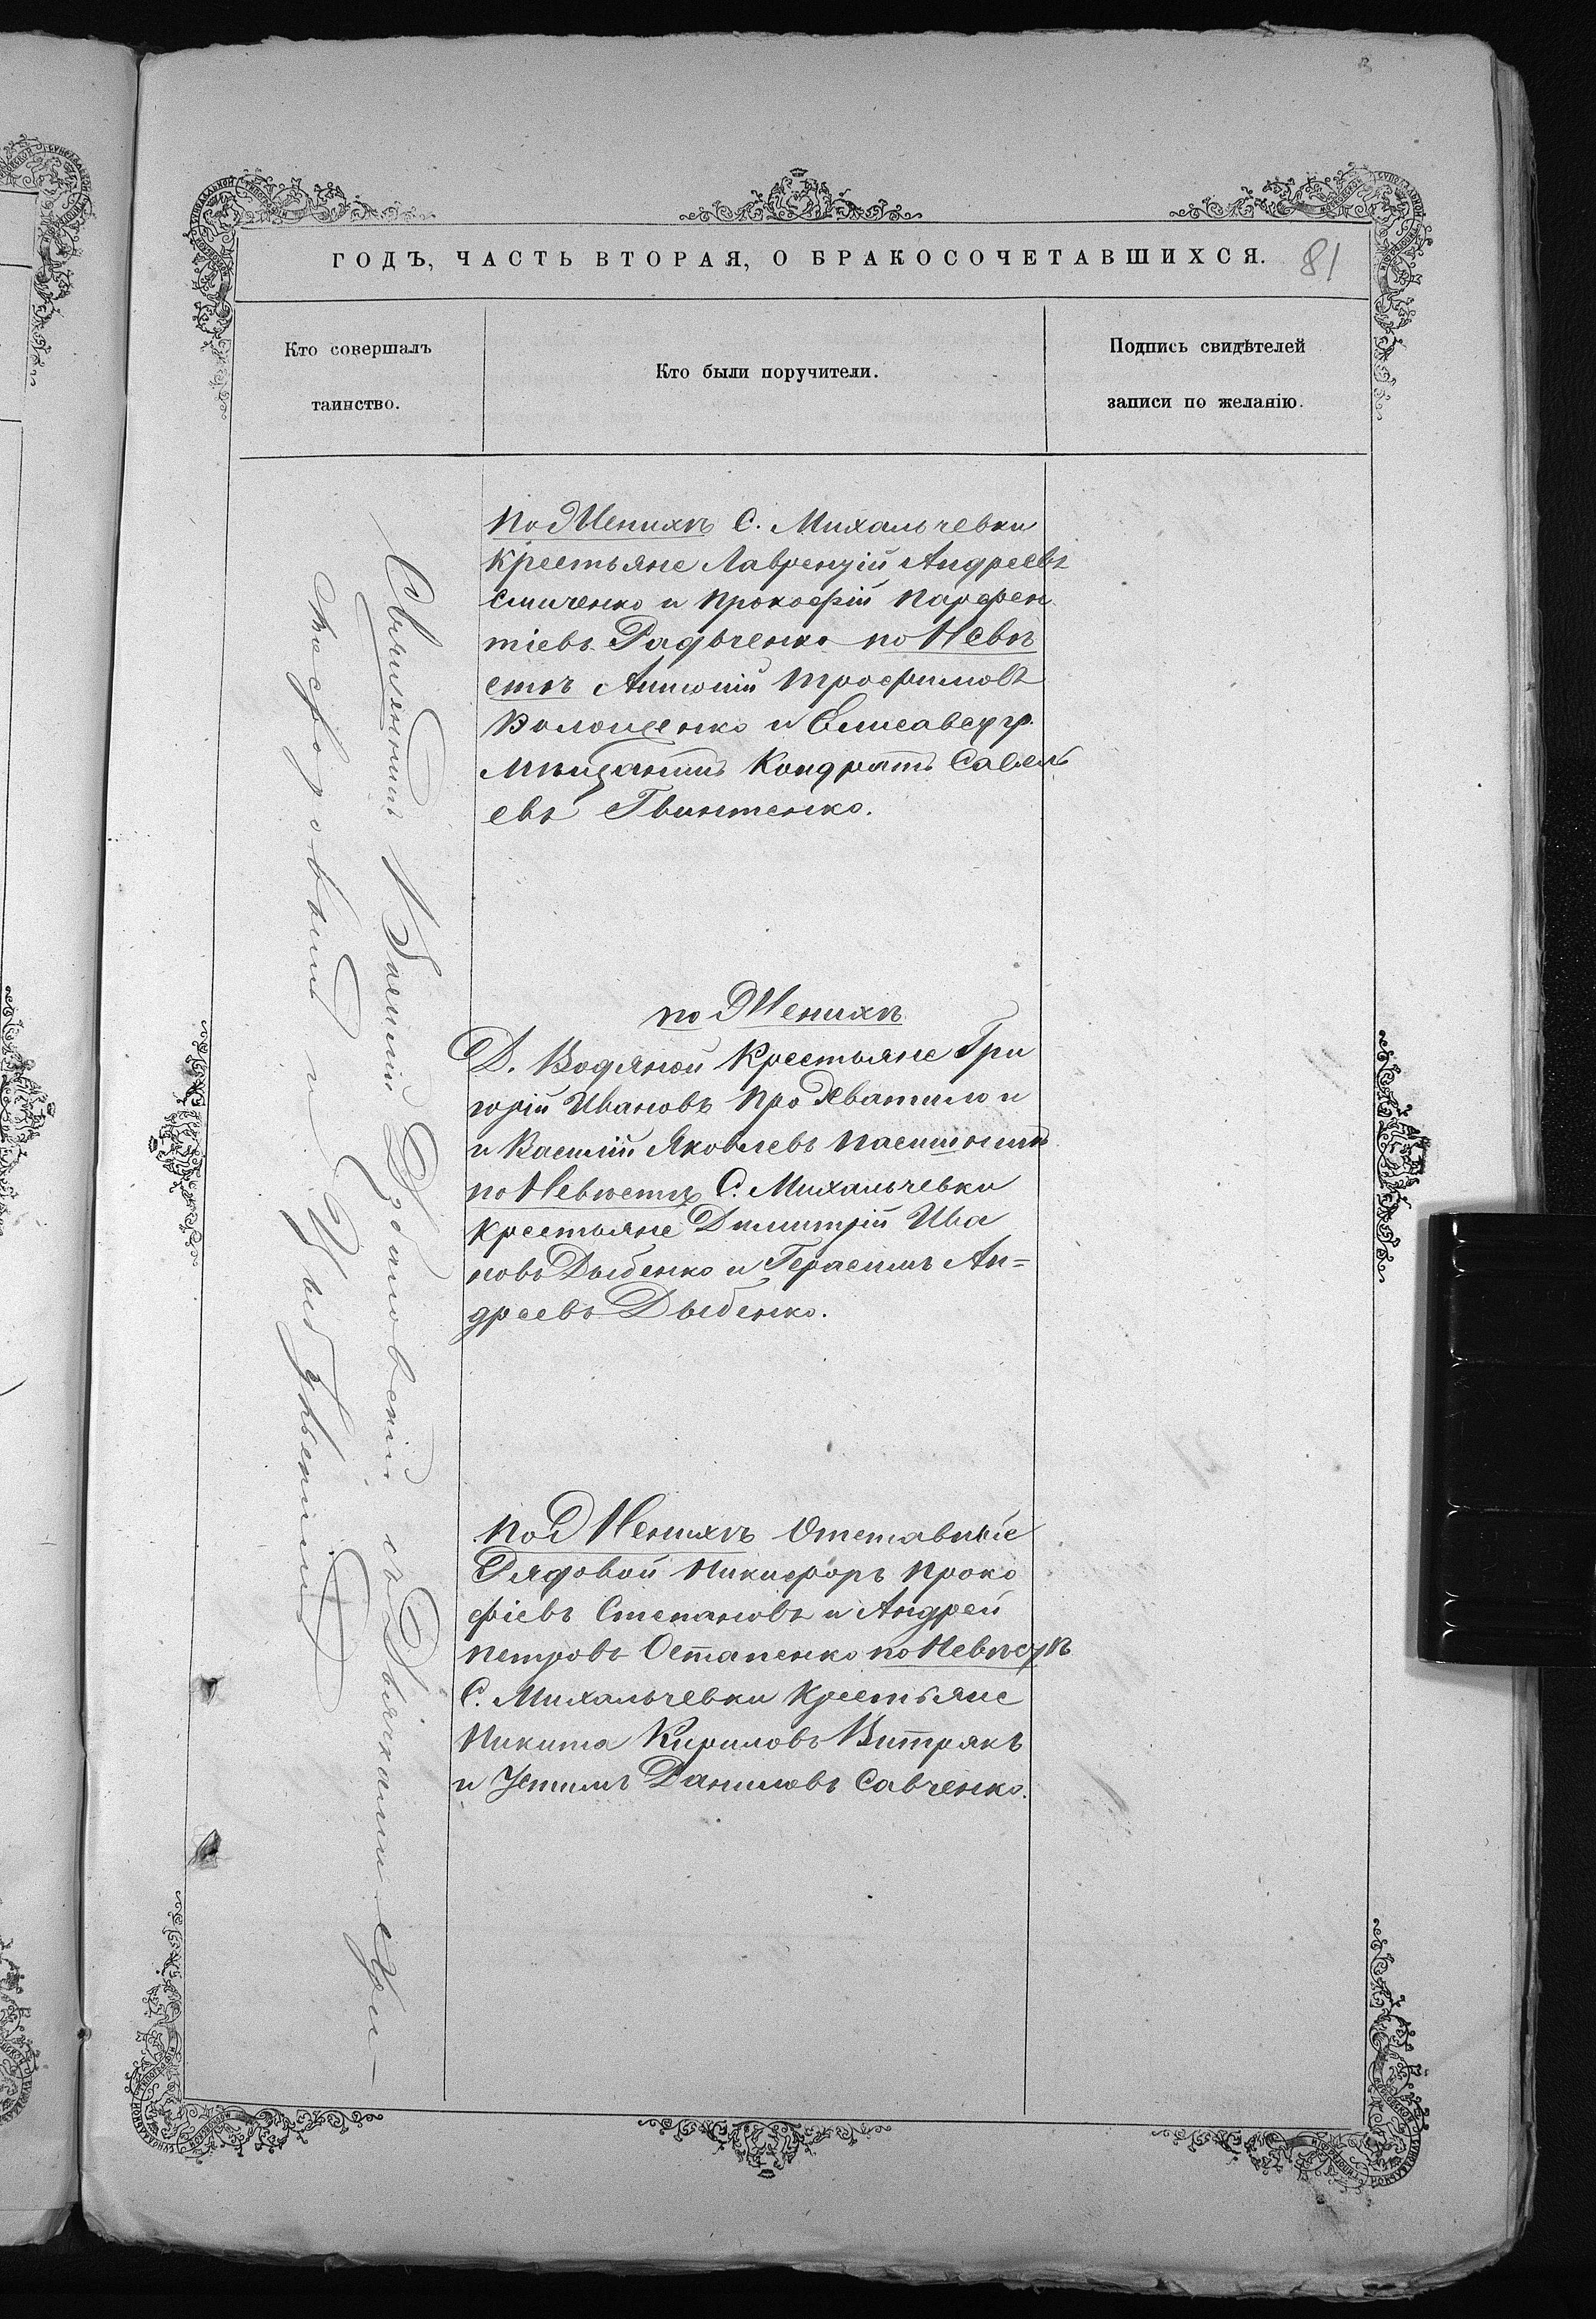 ГОДЪ, ЧАСТЬ ВТОРАЯ, О БРАКОСОЧЕТАВШИХСЯ.
81
Кто совершалъ
таинство.
Кто были поручители.
Подпись свидѣтелей
записи по желанію.
по Женихѣ С. Михальчевки
крестьяне Лаврентій Андреевъ
Симченко и Прокофій Парфен
тіевъ Радченко по Невѣ
стѣ Антоній Трофимовъ
Волощенко и Елисаветгр.
Мѣщанинъ Кондратъ Савель
евъ Гвинтенко.
по Женихѣ
Д. Водяной крестьяне Гри
горій Ивановъ Прохватило и
и Василій Яковлевъ
по Невѣстѣ С. Михальчевки
крестьяне Димитрій Ива
новъ Дыбенко и Герасимъ Ан=
дреевъ Дыбенко.
по Женихѣ Отставные
Рядовой Никифоръ Проко
фіевъ Степановъ и Андрей
Петровъ Остапенко по Невѣстѣ
С. Михальчевки крестьяне
Никита Кириловъ Витрякъ
и Устимъ Даниловъ Савченко.
Священникъ